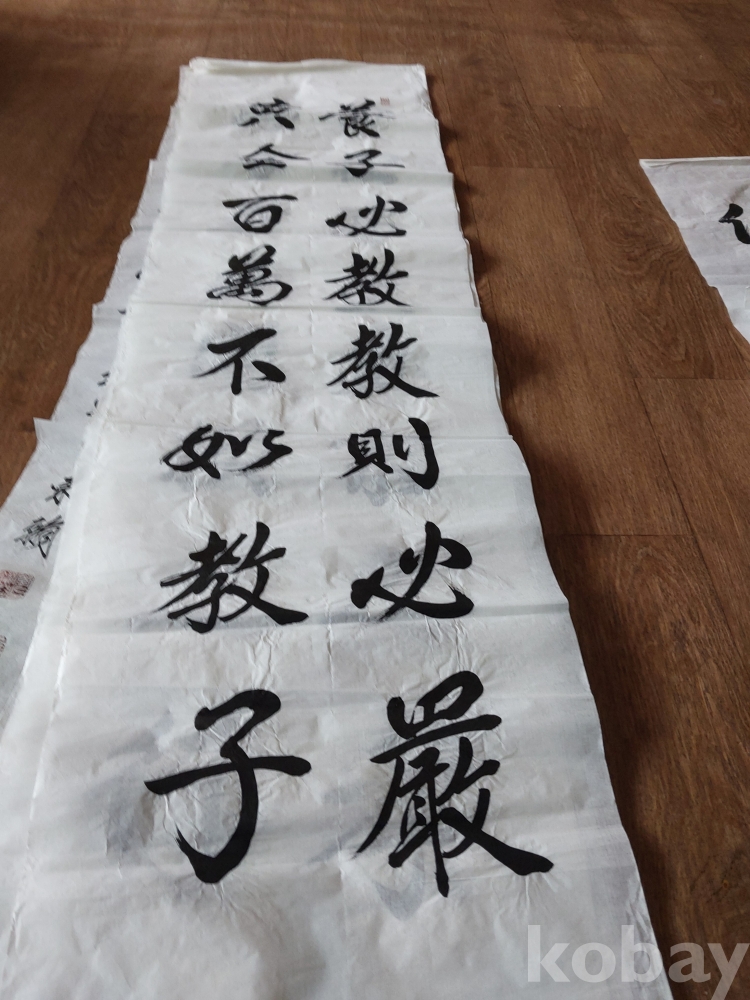 養子必教教則必嚴
黃金百萬不如教子
kobay